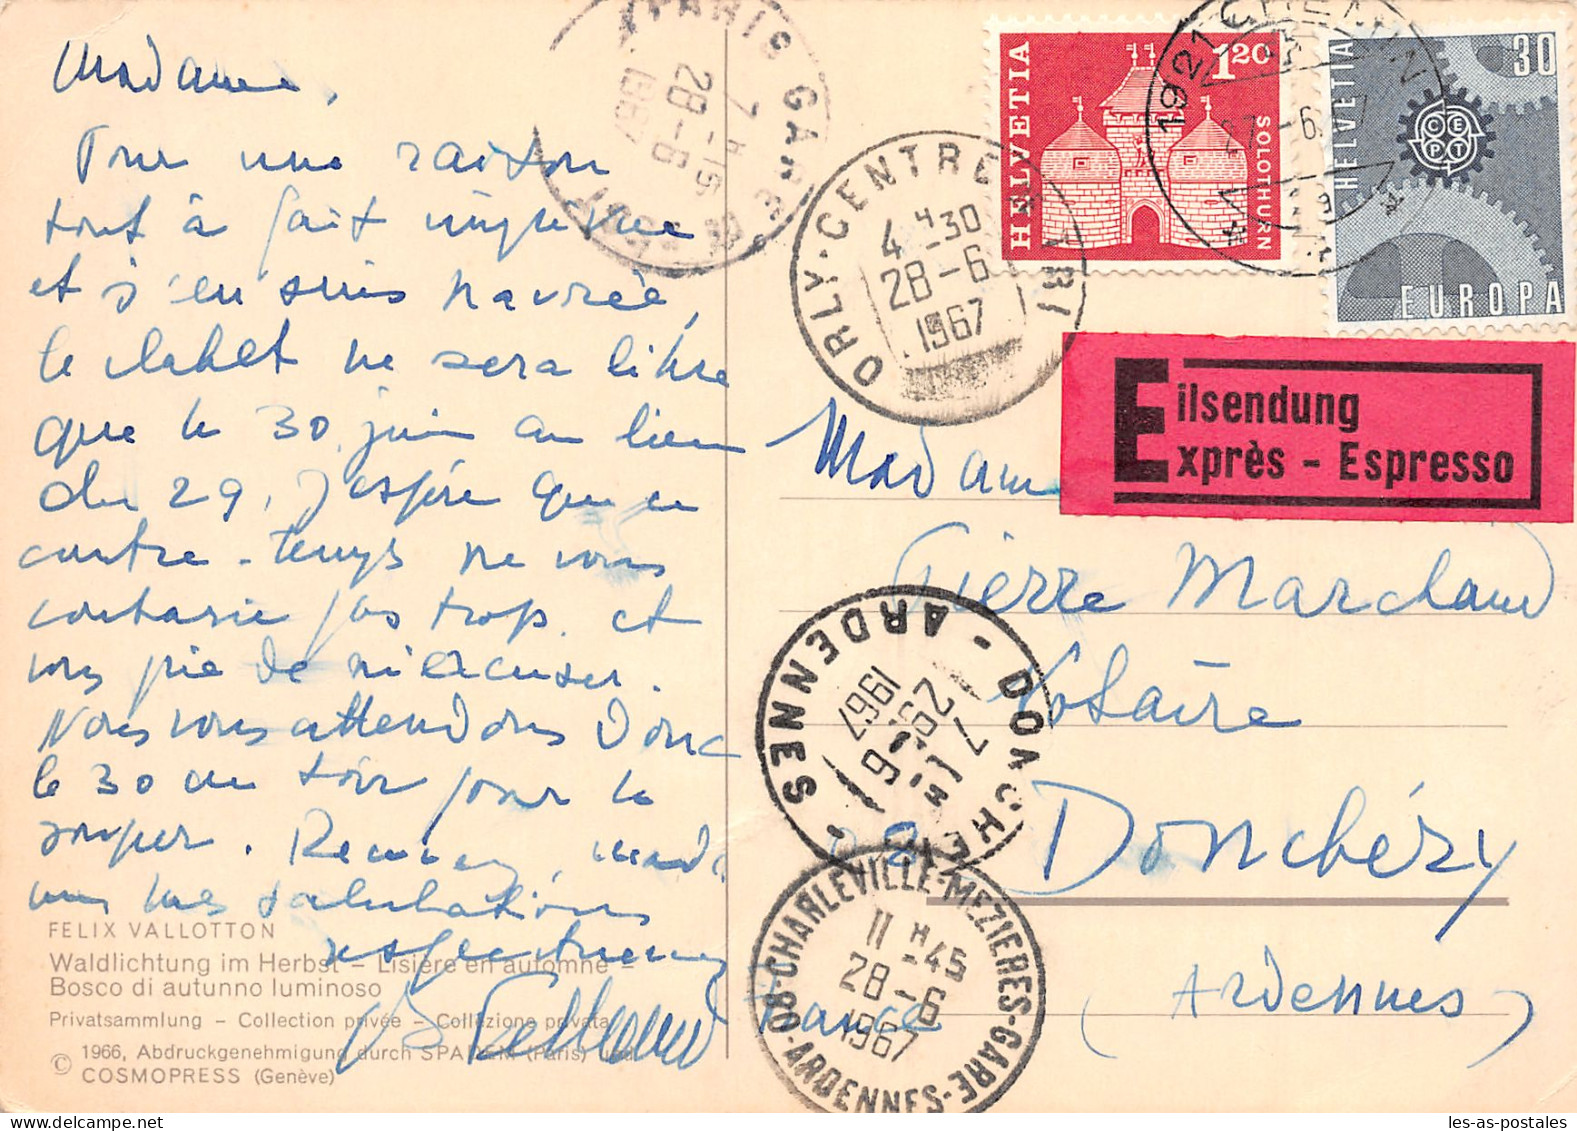 Madame,
Pour une raison
tout à fait imprévue
et j'en suis navrée,
le chalet ne sera libre
que le 30 juin au lieu
du 29, j'espère que ce
contre-temps ne vous
contrarie pas trop. et
vous prie de m'excuser.
Nous vous attendons donc
le 30 au soir pour le
souper. Recevez, mada
me mes salutations
respectueuses
FELIX VALLOTTON
Waldlichtung im Herbst – Lisière en automne –
Bosco di autunno luminoso
Privatsammlung – Collection privée – Collezione privata
© 1966, Abdruckgenehmigung durch SPADEM (Paris) und
COSMOPRESS (Genève)
PARIS GARE
7 H 15
28 - 6
1967
ORLY-CENTRE TRI
4 H 30
28 - 6
1967
HELVETIA
120
SOLOTHURN
1921 CHEMIN
27.-6.67
HELVETIA
30
CEPT
EUROPA
Eilsendung
Exprès – Espresso
Madame
Pierre Marchand
Notaire
08 Donchéry
Ardennes
France
DONCHERY - ARDENNES -
28 - 6
1967
08-CHARLEVILLE-MEZIERES-GARE-ARDENNES-
11 H 45
28 - 6
1967
les-as-postales